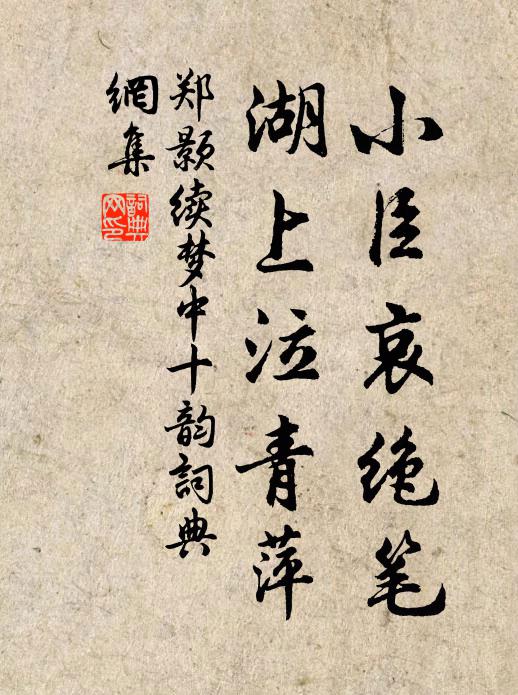 小臣哀绝笔
湖上泣青萍
郑颢续梦中十韵词典
網集
詞典
网印